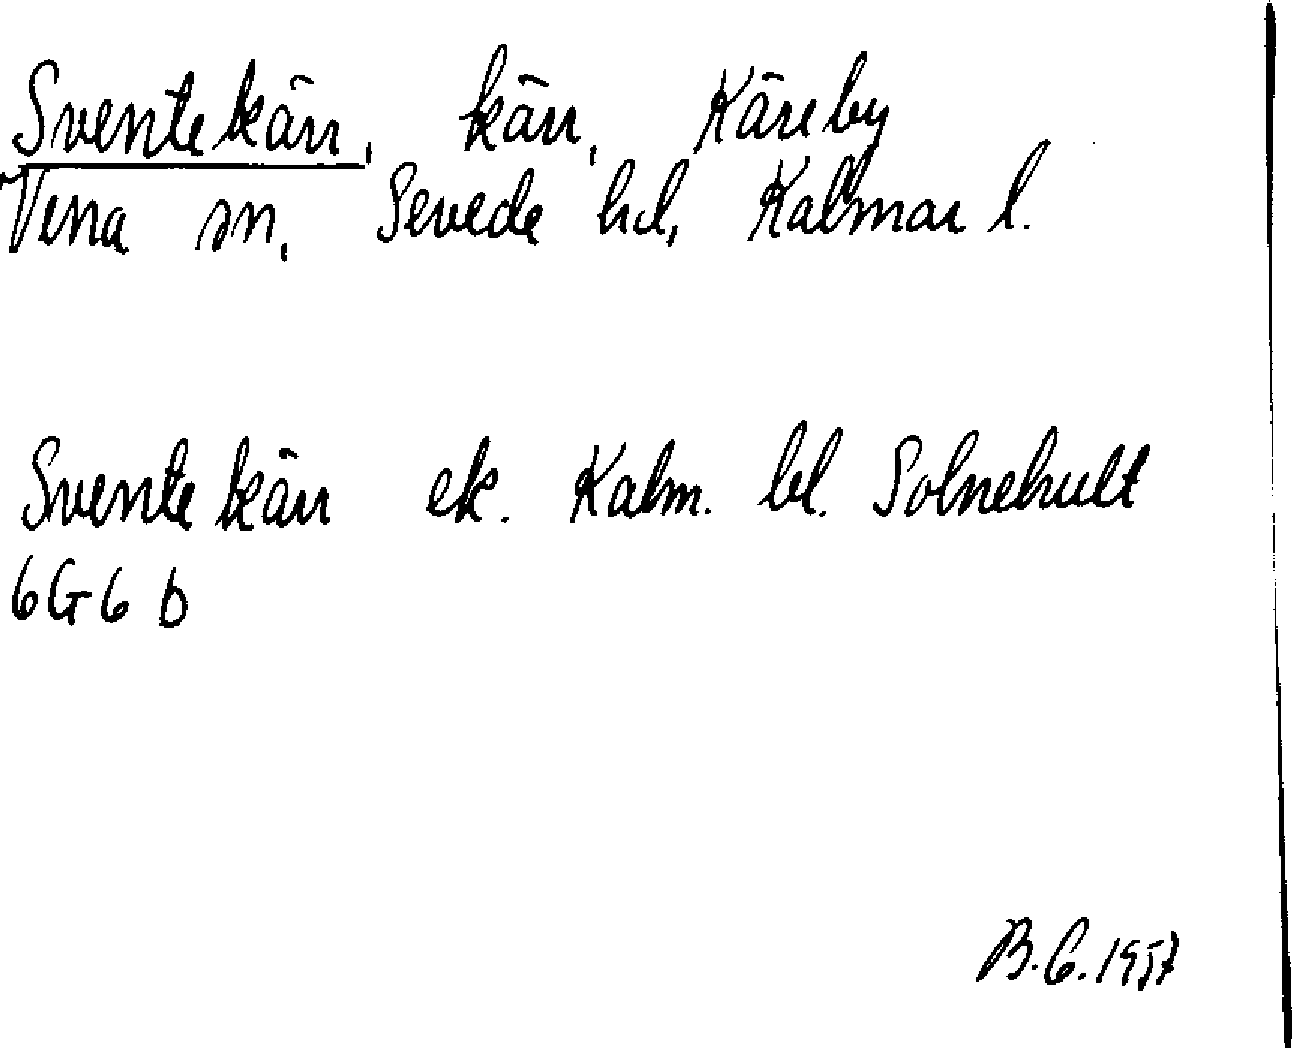 Sventekärr, kärr, Käreby
Vena sn, Sevede hd, Kalmar l.
Sventekärr ek. Kalm. bl. Solnehult
6G6 b
B.G. 1957